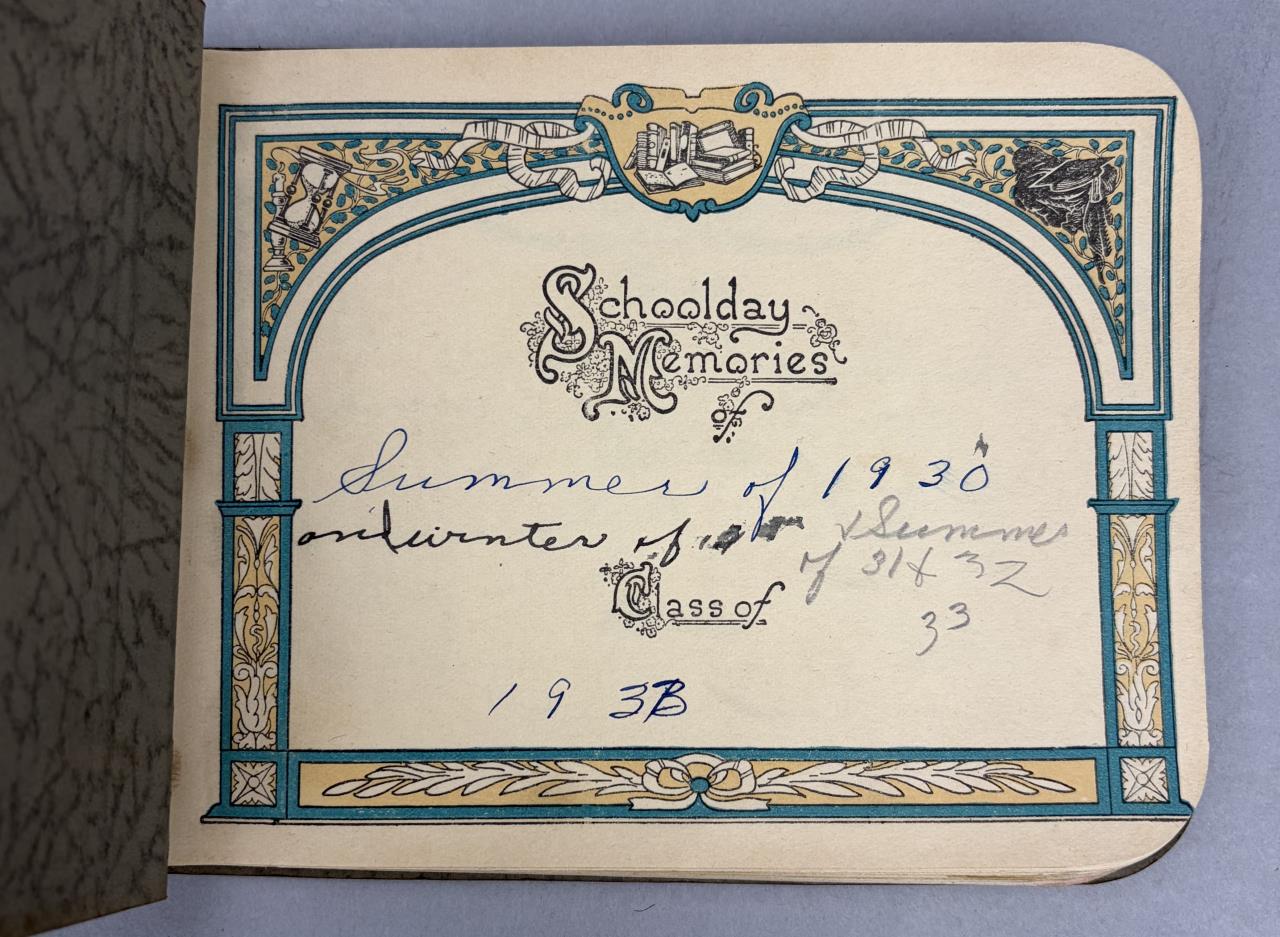 Schoolday
Memories
of
Summer of 1930
and winter of & Summer
of 31 & 32
33
Class of
193